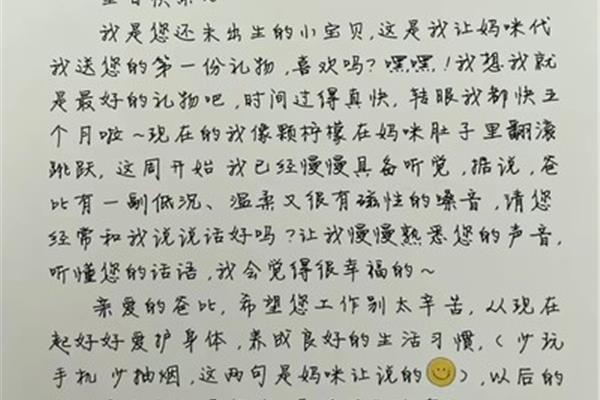 我是您还未出生的小宝贝,这是我让妈咪代
我送您的第一份礼物,喜欢吗?嘿嘿!我想我就
是最好的礼物吧,时间过得真快,转眼我都快五
个月啦~现在的我像颗柠檬在妈咪肚子里翻滚
跳跃,这周开始我已经慢慢具备听觉,据说,爸
比有一副低沉、温柔又很有磁性的嗓音,请您
经常和我说说话好吗?让我慢慢熟悉您的声音,
听懂您的话语,我会觉得很幸福的~
亲爱的爸比,希望您工作别太辛苦,从现在
起好好爱护身体,养成良好的生活习惯,(少玩
手机少抽烟,这两句是妈咪让说的),以后的